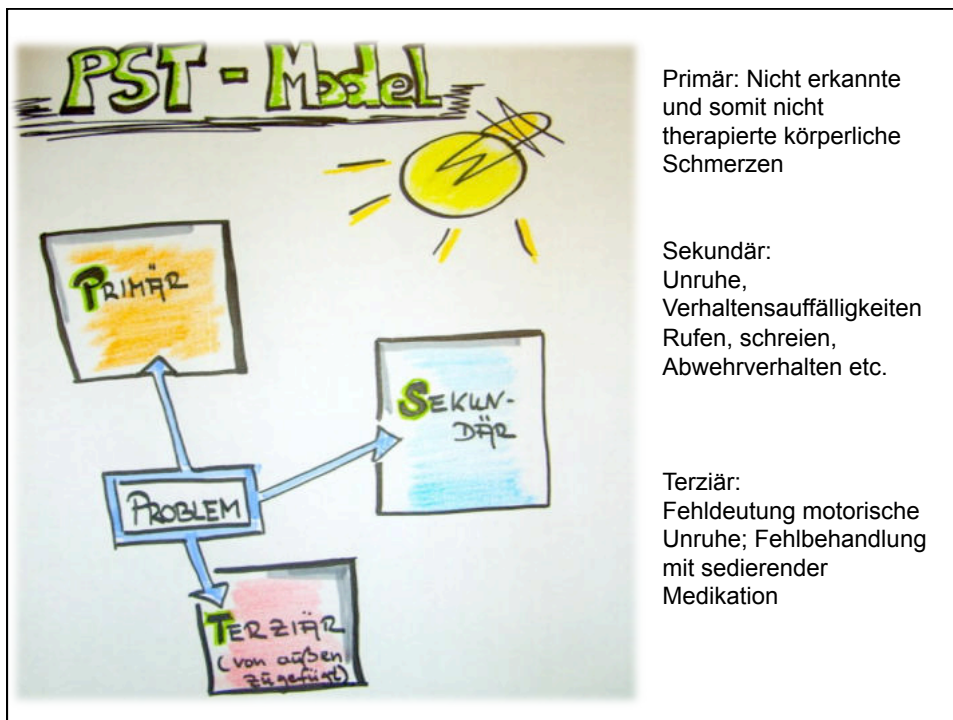 PST - Model
PRIMÄR
SEKUN-
DÄR
PROBLEM
TERZIÄR
(von außen
zugefügt)
Primär: Nicht erkannte
und somit nicht
therapierte körperliche
Schmerzen
Sekundär:
Unruhe,
Verhaltensauffälligkeiten
Rufen, schreien,
Abwehrverhalten etc.
Terziär:
Fehldeutung motorische
Unruhe; Fehlbehandlung
mit sedierender
Medikation